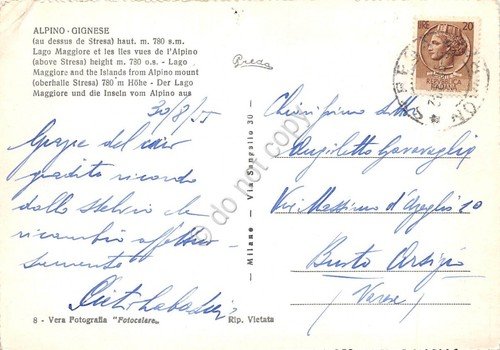 ALPINO - GIGNESE
(au dessus de Stresa) haut. m. 780 s.m.
Lago Maggiore et les lles vues de l'Alpino
(above Stresa) height m. 730 o.s. - Lago
Maggiore and the Islands from Alpino mount
(oberhalle Stresa) 780 m Höhe - Der Lago
Maggiore und die Inseln vom Alpino aus
30/8/55
Grazie del caro
gradito ricordo
dallo Stelvio che
ricambio affettuo-
samente
8 - Vera Fotografia "Fotocelere"
Rip. Vietata
Preda
Milano - Via Sangallo 30
20
Chiarissimo
Angioletto Garavaglia
Via Massimo d'Azeglio 10
Busto Arsizio
(Varese)
do not copy